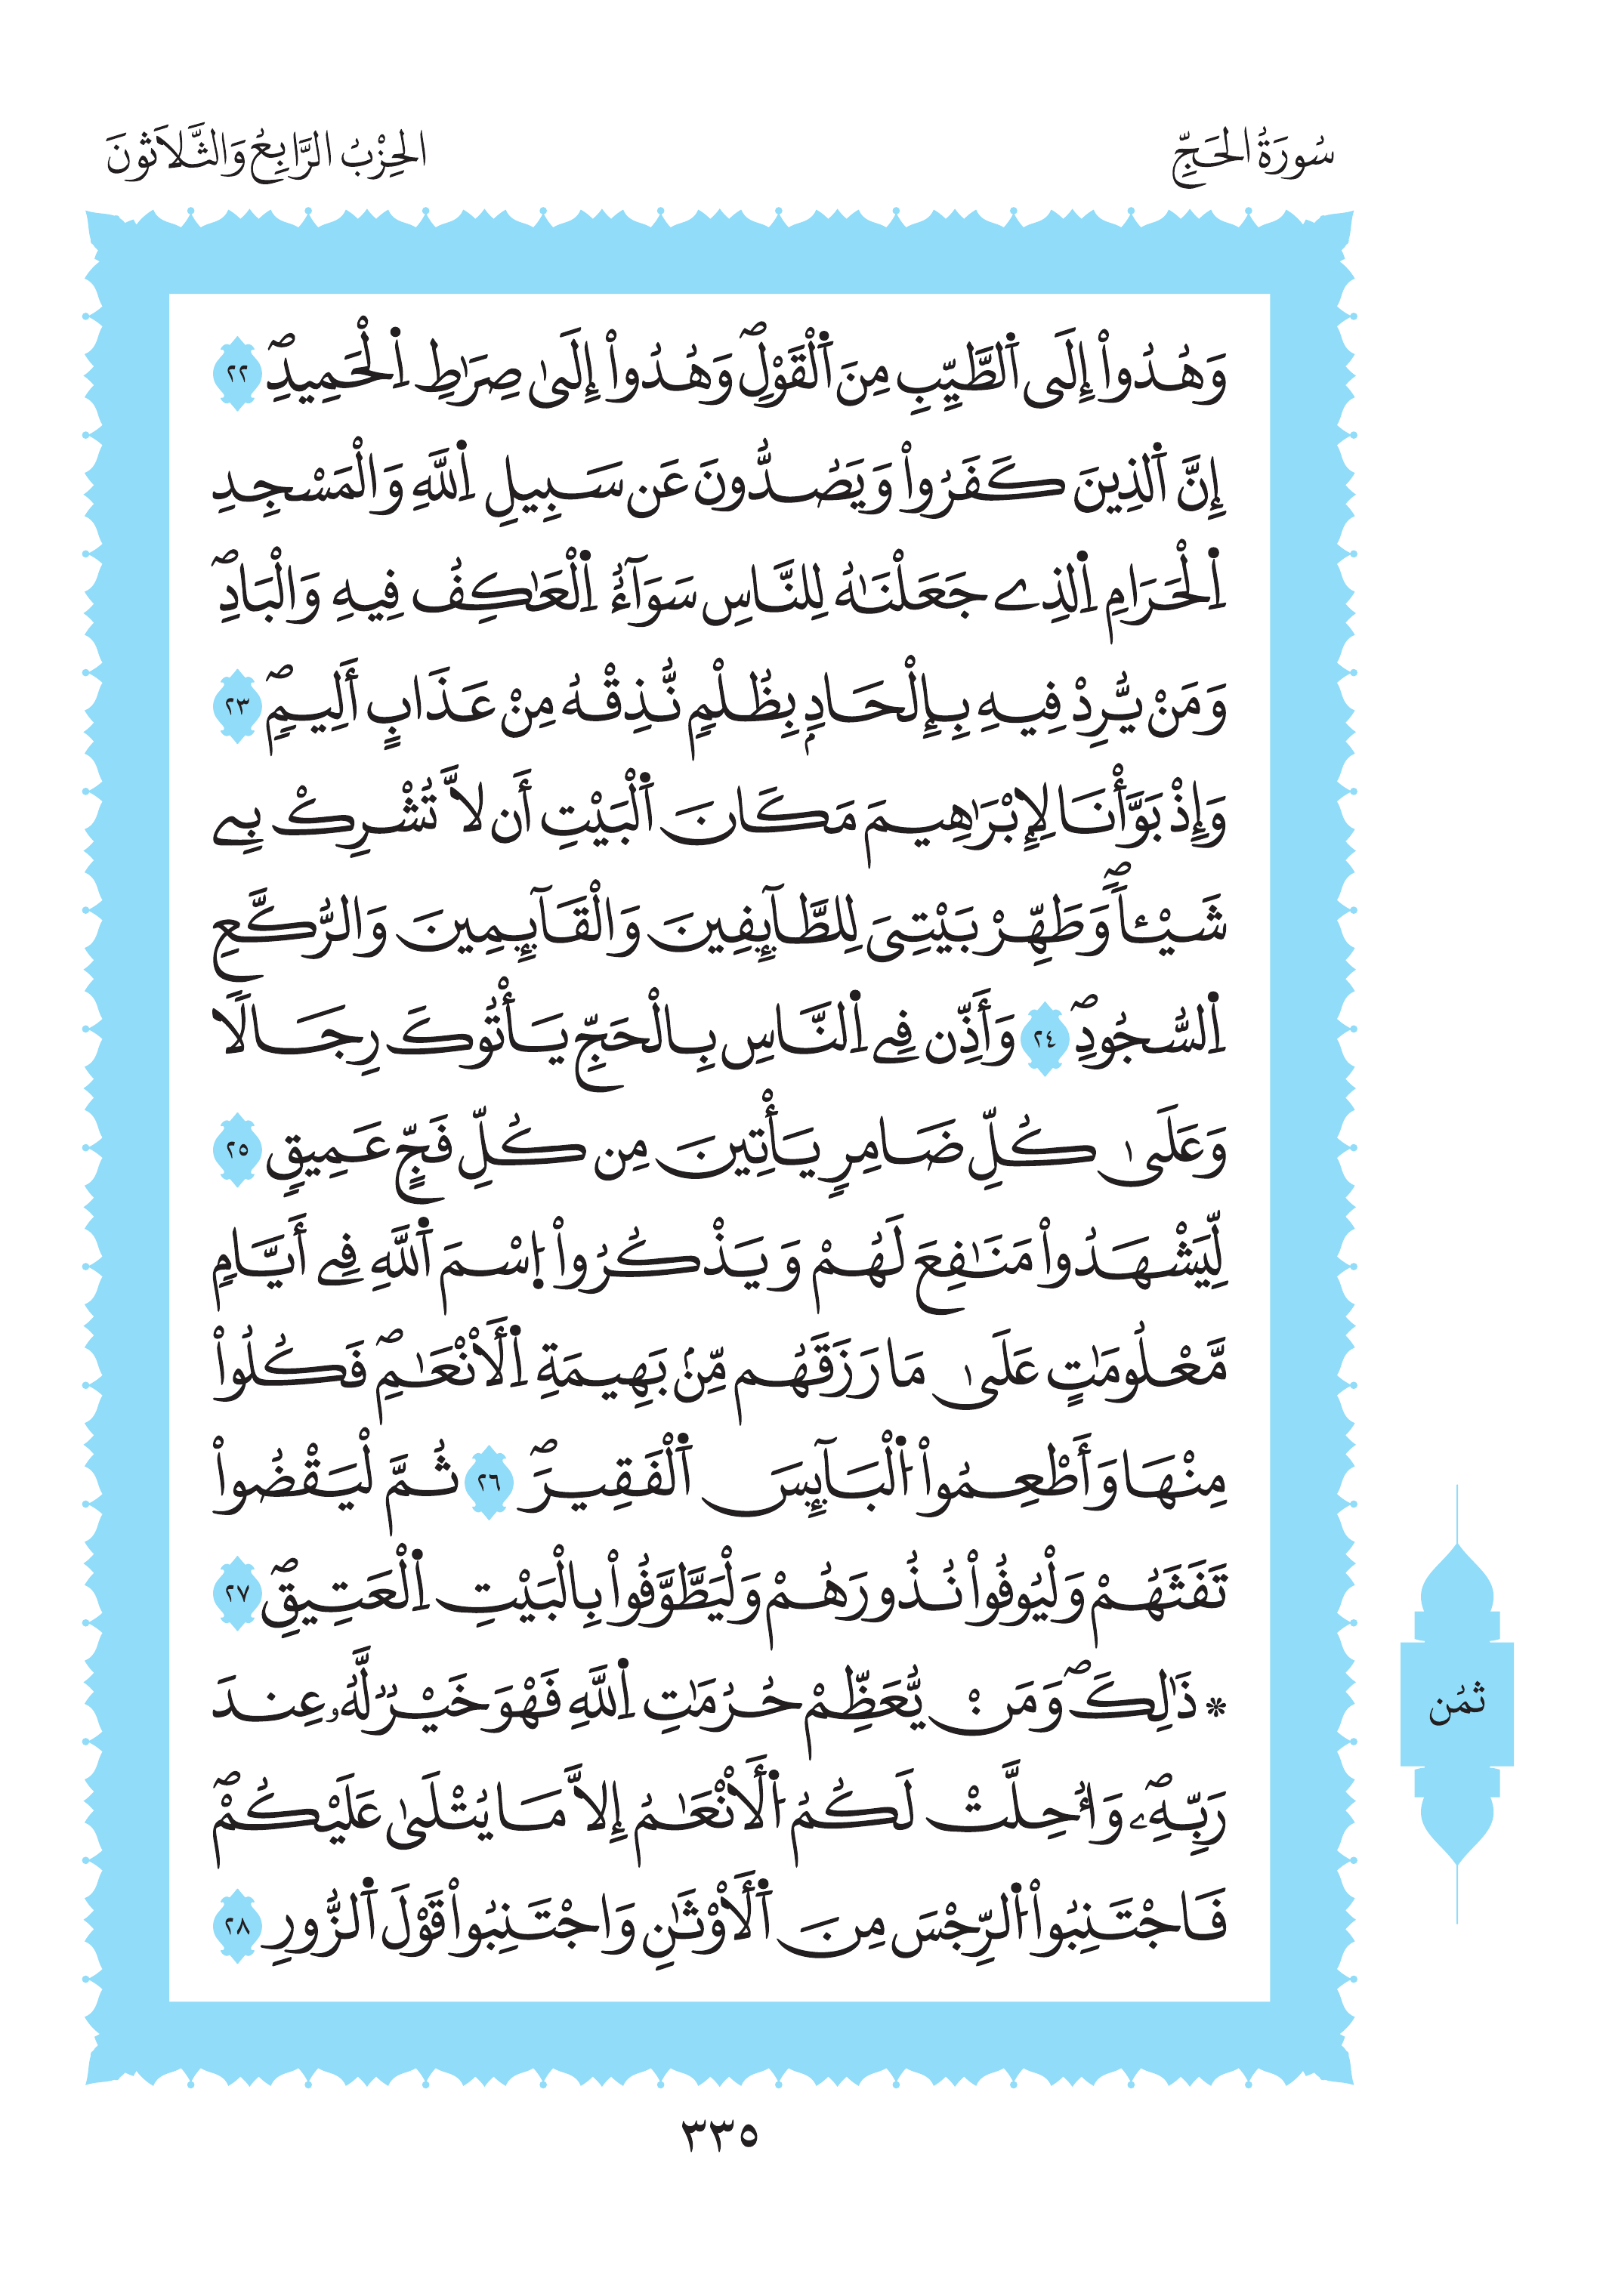 سُورَةُ الحَجِّ
الحِزْبُ الرَّابِعُ وَالثَّلَاثُونَ
وَهُدُوٓاْ إِلَى اَ۬لطَّيِّبِ مِنَ اَ۬لْقَوْلِۖ وَهُدُوٓاْ إِلَىٰ صِرَٰطِ اِ۬لْحَمِيدِۖ ٢٢
إِنَّ اَ۬لذِينَ كَفَرُواْ وَيَصُدُّونَ عَن سَبِيلِ اِ۬للَّهِ وَالْمَسْجِدِ
اِ۬لْحَرَامِ اِ۬لذِے جَعَلْنَٰهُ لِلنَّاسِ سَوَآءٌ اِ۬لْعَٰكِفُ فِيهِ وَالْبَادِۖ
وَمَنْ يُّرِدْ فِيهِ بِإِلْحَادِۢ بِظُلْمٍ نُّذِقْهُ مِنْ عَذَابٍ أَلِيمٍۖ ٢٣
وَإِذْ بَوَّأْنَا لِإِبْرَٰهِيمَ مَكَانَ اَ۬لْبَيْتِ أَن لَّا تُشْرِكْ بِے
شَيْـٔاٗۖ وَطَهِّرْ بَيْتِيَ لِلطَّآئِفِينَ وَالْقَآئِمِينَ وَالرُّكَّعِ
اِ۬لسُّجُودِۖ ٢٤ وَأَذِّن فِے اِ۬لنَّاسِ بِالْحَجِّ يَأْتُوكَ رِجَالاٗ
وَعَلَىٰ كُلِّ ضَامِرٖ يَأْتِينَ مِن كُلِّ فَجٍّ عَمِيقٖ ٢٥
لِّيَشْهَدُواْ مَنَٰفِعَ لَهُمْ وَيَذْكُرُواْ اُ۪سْمَ اَ۬للَّهِ فِے أَيَّامٖ
مَّعْلُومَٰتٍ عَلَىٰ مَا رَزَقَهُم مِّنۢ بَهِيمَةِ اِ۬لْأَنْعَٰمِۖ فَكُلُواْ
مِنْهَا وَأَطْعِمُواْ اُ۬لْبَآئِسَ اَ۬لْفَقِيرَۖ ٢٦ ثُمَّ لْيَقْضُواْ
تَفَثَهُمْ وَلْيُوفُواْ نُذُورَهُمْ وَلْيَطَّوَّفُواْ بِالْبَيْتِ اِ۬لْعَتِيقِۖ ٢٧
* ذَٰلِكَۖ وَمَنْ يُّعَظِّمْ حُرُمَٰتِ اِ۬للَّهِ فَهْوَ خَيْرٞ لَّهُۥ عِندَ
رَبِّهِۦۖ وَأُحِلَّتْ لَكُمُ اُ۬لْأَنْعَٰمُ إِلَّا مَا يُتْلَىٰ عَلَيْكُمْۖ
فَاجْتَنِبُواْ اُ۬لرِّجْسَ مِنَ اَ۬لْأَوْثَٰنِ وَاجْتَنِبُواْ قَوْلَ اَ۬لزُّورِ ٢٨
ثمُن
٣٣٥